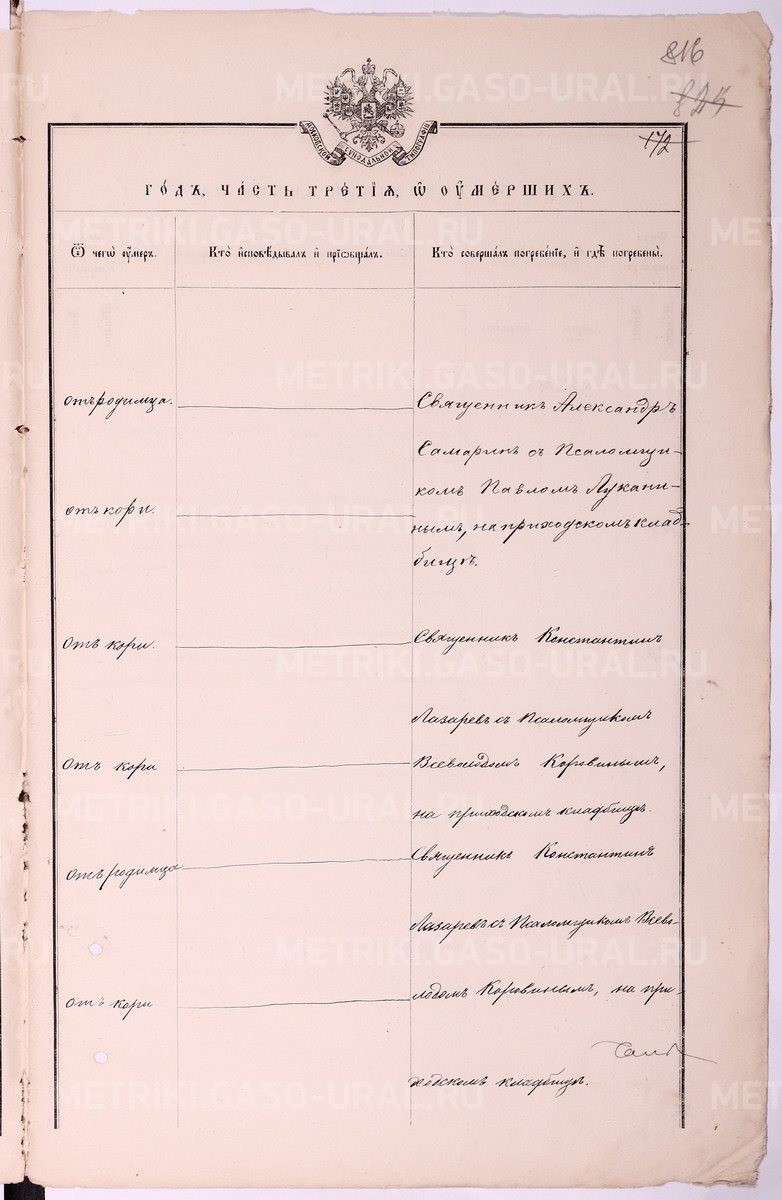 816
824
172
МОСКОВСКОЙ СѴНОДАЛЬНОЙ ТИПОГРАФІИ
ГО́ДЪ, ЧА́СТЬ ТРЕ́ТІѦ, Ѡ ОУ҆МЕ́РШИХЪ.
Ѿ чегѡ̀ ᲂу҆́меръ.
Кто̀ и҆сповѣ́дывалъ и҆ прїѡбща́лъ.
Кто̀ соверша́лъ погребе́нїе, и҆ гдѣ̀ погребены̀.
отъ родимца.
Священникъ Александръ
Самаринъ съ Псаломщи-
комъ Павломъ Лукани-
отъ кори.
нымъ, на приходскомъ клад-
бищѣ.
отъ кори.
Священникъ Константинъ
Лазаревъ съ Псаломщикомъ
отъ кори
Всеволодомъ Коровинымъ,
на приходскомъ кладбищѣ.
отъ родимца
Священникъ Константинъ
Лазаревъ съ Псаломщикомъ Всево-
отъ кори
лодомъ Коровинымъ, на при-
ходскомъ кладбищѣ.
METRIKI.GASO-URAL.RU